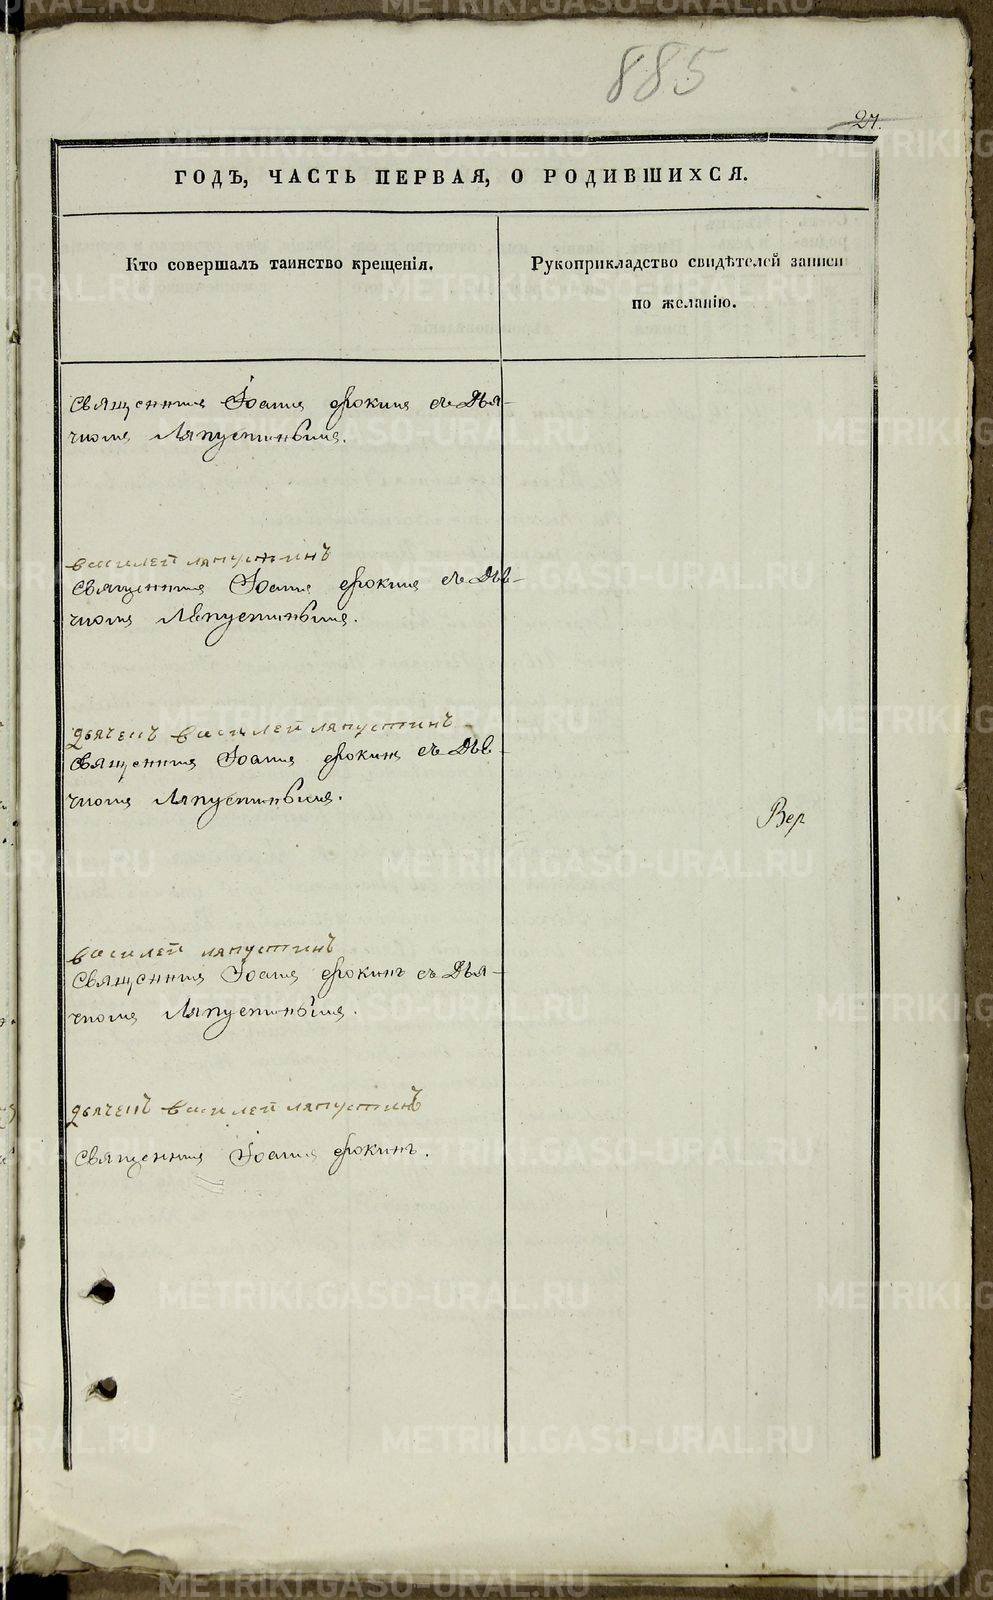 885
27.
ГОДЪ, ЧАСТЬ ПЕРВАЯ, О РОДИВШИХСЯ.
Кто совершалъ таинство крещенія.
Рукоприкладство свидѣтелей записи
по желанію.
Священник Іоанн Фокин съ Дья-
чком Ляпустиным.
василей ляпустинъ
Священник Іоанн Фокин съ Дья-
чком Ляпустиным.
дьячекъ василей ляпустинъ
Священник Іоанн Фокин съ Дья-
чком Ляпустиным.
Вер
василей ляпустинъ
Священник Іоанн Фокинъ съ Дья-
чком Ляпустиным.
дьячекъ василей ляпустинъ
Священник Іоанн Фокинъ.
METRIKI.GASO-URAL.RU